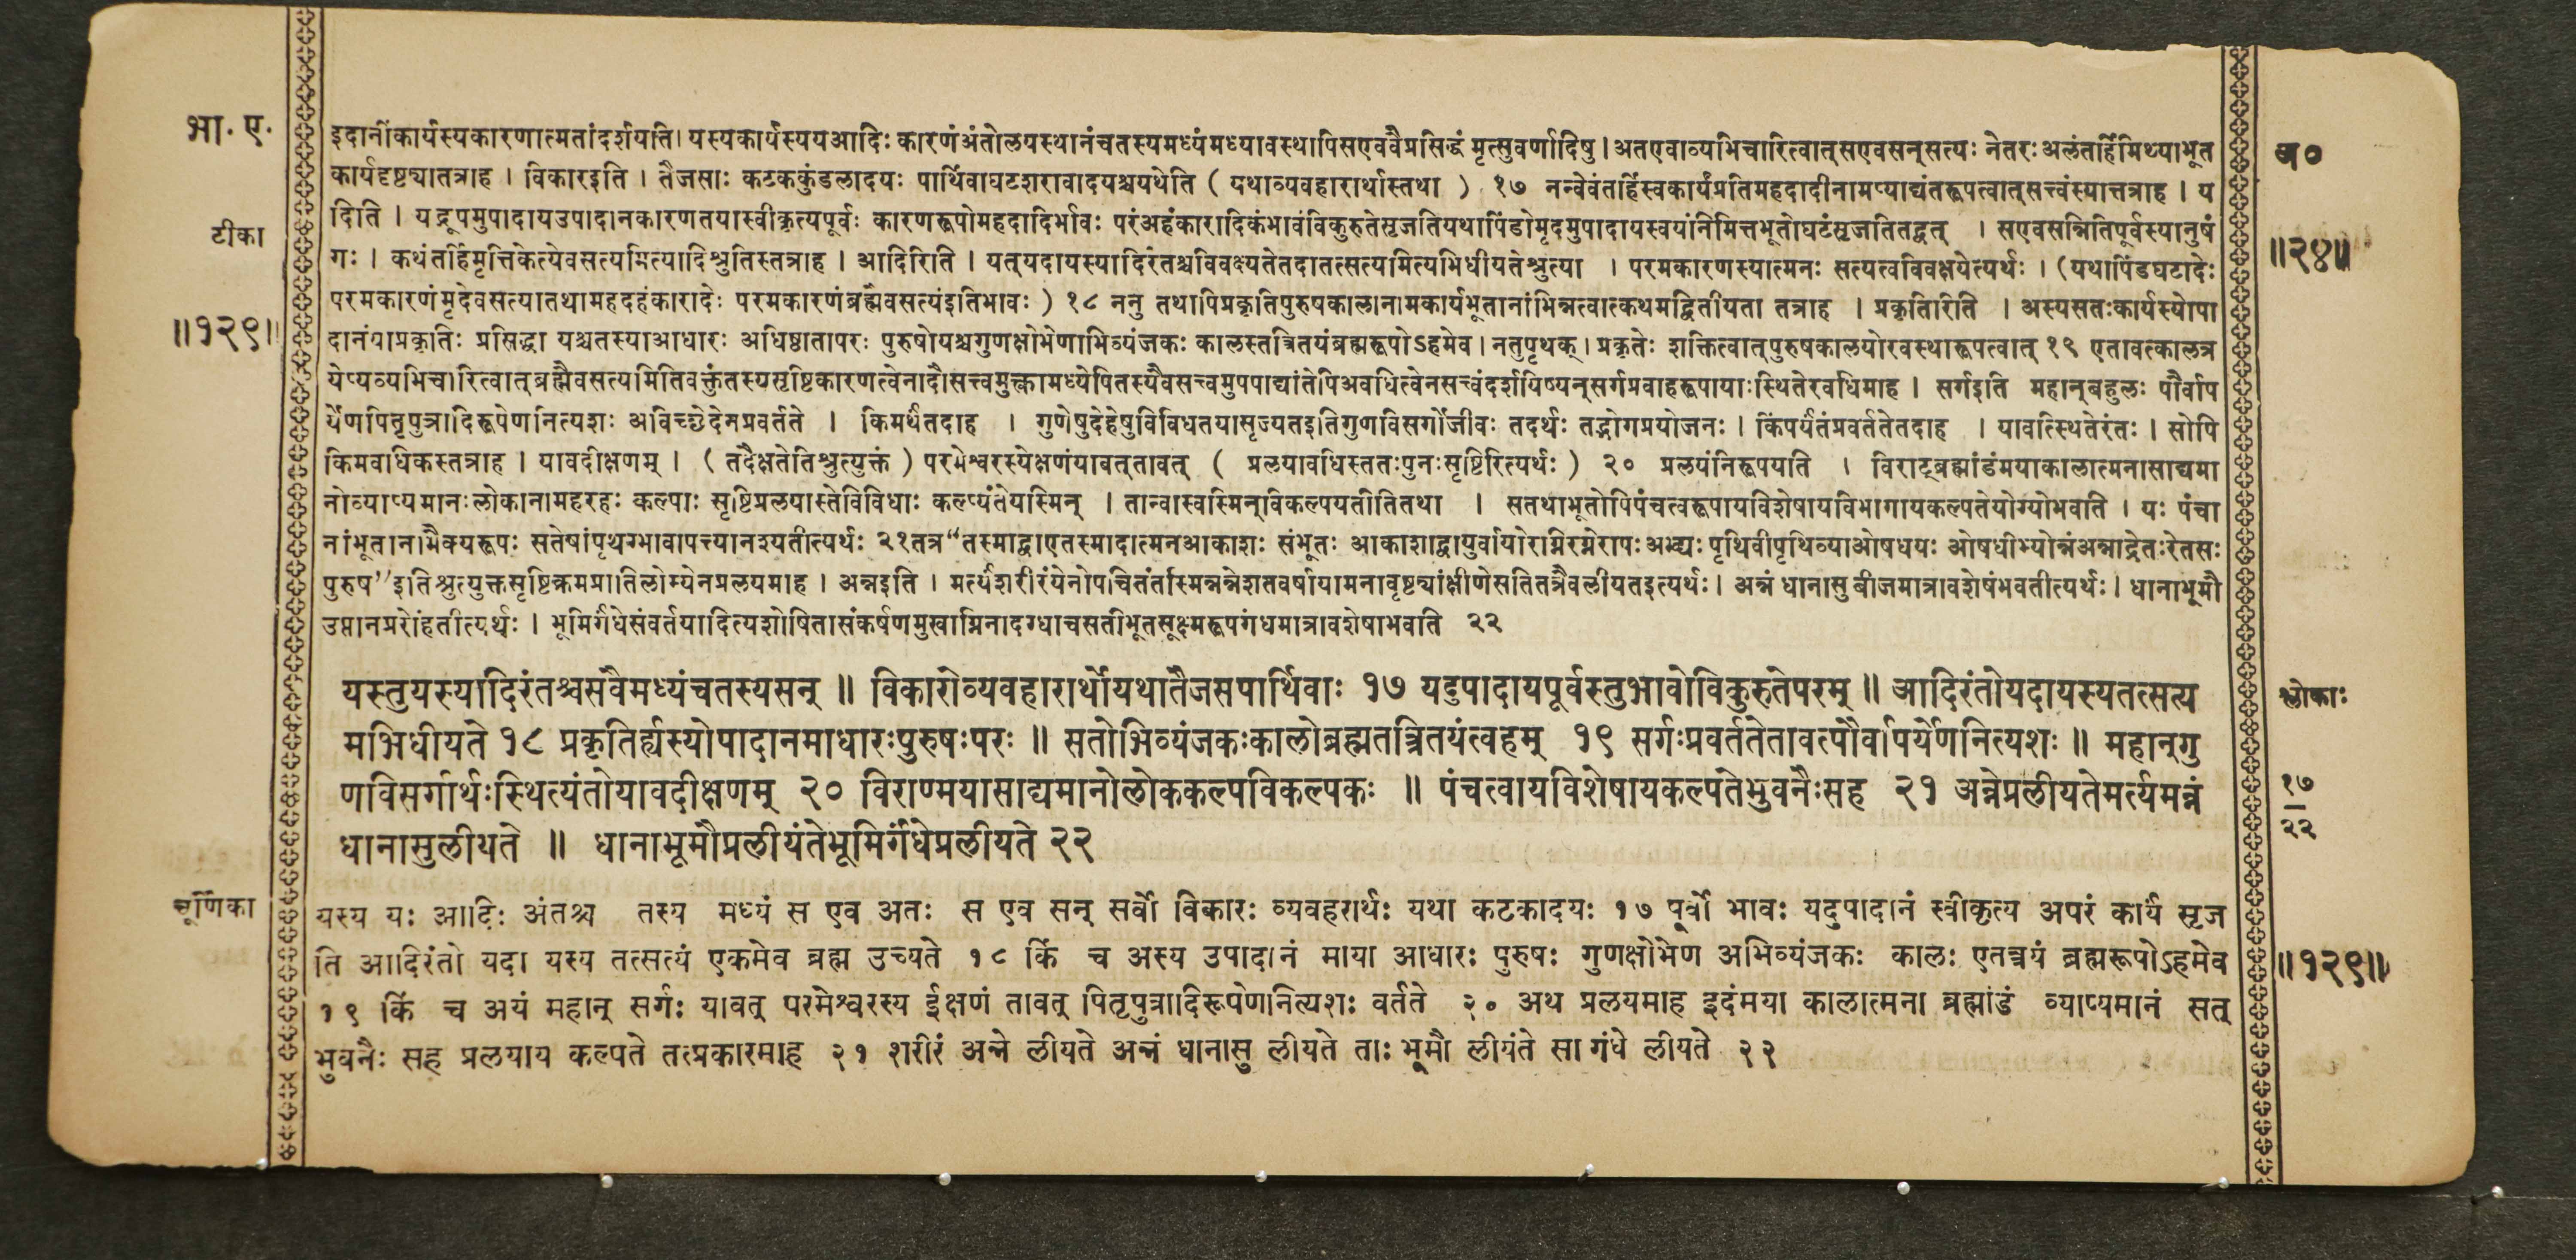 भा. ए.
टीका
॥१२९॥
इदानींकार्यस्यकारणात्मतांदर्शयति। यस्यकार्यस्ययआदिः कारणंअंतोलयस्थानंचतस्यमध्यंमध्यावस्थापिसएववैप्रसिद्धं मृत्सुवर्णादिषु।अतएवाव्यभिचारित्वात्सएवसन्सत्यः नेतरःअलंतर्हिमिथ्याभूत
कार्यदृष्ट्यातत्राह । विकारइति । तैजसाः कटककुंडलादयः पार्थिवाघटशरावादयश्चयथेति ( यथाव्यवहारार्थास्तथा ) १७ नन्वेवंतर्हिस्वकार्यंप्रतिमहदादीनामप्याद्यंतरूपत्वात्सत्त्वंस्यात्तत्राह । य
दिति । यद्रूपमुपादायउपादानकारणतयास्वीकृत्यपूर्वः कारणरूपोमहदादिर्भावः परंअहंकारादिकंभावंविकुरुतेसृजतियथापिंडोमृदमुपादायस्वयंनिमित्तभूतोघटंसृजतितद्वत् । सएवसन्नितिपूर्वस्यानुषं
गः । कथंतर्हिमृत्तिकेत्येवसत्यमित्यादिश्रुतिस्तत्राह । आदिरिति । यत्यदायस्यादिरंतश्चविवक्ष्यतेतदातत्सत्यमित्यभिधीयतेश्रुत्या । परमकारणस्यात्मनः सत्यत्वविवक्षयेत्यर्थः । (यथापिंडघटादेः
परमकारणंमृदेवसत्यातथामहदहंकारादेः परमकारणंब्रह्मैवसत्यंइतिभावः ) १८ ननु तथापिप्रकृतिपुरुषकालानामकार्यभूतानांभिन्नत्वात्कथमद्वितीयता तत्राह । प्रकृतिरिति । अस्यसतःकार्यस्योपा
दानंयाप्रकृतिः प्रसिद्धा यश्चतस्याआधारः अधिष्ठातापरः पुरुषोयश्चगुणक्षोभेणाभिव्यंजकः कालस्तत्रितयंब्रह्मरूपोऽहमेव। नतुपृथक्। प्रकृतेः शक्तित्वात्पुरुषकालयोरवस्थारूपत्वात् १९ एतावत्कालत्र
येप्यव्यभिचारित्वात्ब्रह्मैवसत्यमितिवक्तुंतस्यसृष्टिकारणत्वेनादौसत्त्वमुक्त्वामध्येपितस्यैवसत्त्वमुपपाद्यांतेपिअवधित्वेनसत्त्वंदर्शयिष्यन्सर्गप्रवाहरूपायाःस्थितेरवधिमाह । सर्गइति महान्बहुलः पौर्वाप
र्येणपितृपुत्रादिरूपेणनित्यशः अविच्छेदेनप्रवर्तते । किमर्थंतदाह । गुणेषुदेहेषुविविधतयासृज्यतइतिगुणविसर्गोजीवः तदर्थः तद्भोगप्रयोजनः । किंपर्यंतंप्रवर्ततेतदाह । यावत्स्थितेरंतः । सोपि
किमवधिकस्तत्राह । यावदीक्षणम् । ( तदैक्षतेतिश्रुत्युक्तं ) परमेश्वरस्येक्षणंयावत्तावत् ( प्रलयावधिस्ततःपुनःसृष्टिरित्यर्थः ) २० प्रलयंनिरूपयति । विराट्ब्रह्मांडंमयाकालात्मनासाद्यमा
नोव्याप्यमानःलोकानामहरहः कल्पाः सृष्टिप्रलयास्तेविविधाः कल्प्यंतेयस्मिन् । तान्वास्वस्मिन्विकल्पयतीतितथा । सतथाभूतोपिपंचत्वरूपायविशेषायविभागायकल्पतेयोग्योभवति । यः पंचा
नांभूतानामैक्यरूपः सतेषांपृथग्भावापत्त्यानश्यतीत्यर्थः २१तत्र“तस्माद्वाएतस्मादात्मनआकाशः संभूतः आकाशाद्वायुर्वायोरग्निरग्नेरापःअद्भ्यः पृथिवीपृथिव्याओषधयः ओषधीभ्योन्नंअन्नाद्रेतःरेतसः
पुरुष”इतिश्रुत्युक्तसृष्टिक्रमप्रातिलोम्येनप्रलयमाह । अन्नइति । मर्त्यंशरीरंयेनोपचितंतस्मिन्नन्नेशतवर्षायामनावृष्ट्यांक्षीणेसतितत्रैवलीयतइत्यर्थः। अन्नं धानासु बीजमात्रावशेषंभवतीत्यर्थः। धानाभूमौ
उप्तानप्ररोहंतीत्यर्थः । भूमिर्गंधेसंवर्तयादित्यशोषितासंकर्षणमुखाग्निनादग्धाचसतीभूतसूक्ष्मरूपगंधमात्रावशेषाभवति २२
अ०
॥२४॥
यस्तुयस्यादिरंतश्चसवैमध्यंचतस्यसन् ॥ विकारोव्यवहारार्थोयथातैजसपार्थिवाः १७ यदुपादायपूर्वस्तुभावोविकुरुतेपरम् ॥ आदिरंतोयदायस्यतत्सत्य
मभिधीयते १८ प्रकृतिर्ह्यस्योपादानमाधारःपुरुषःपरः ॥ सतोभिव्यंजकःकालोब्रह्मतत्रितयंत्वहम् १९ सर्गःप्रवर्ततेतावत्पौर्वापर्येणनित्यशः ॥ महान्गु
णविसर्गार्थःस्थित्यंतोयावदीक्षणम् २० विराण्मयासाद्यमानोलोककल्पविकल्पकः ॥ पंचत्वायविशेषायकल्पतेभुवनैःसह २१ अन्नेप्रलीयतेमर्त्यमन्नं
धानासुलीयते ॥ धानाभूमौप्रलीयंतेभूमिर्गंधेप्रलीयते २२
श्लोकाः
१७
२२
चूर्णिका
यस्य यः आदिः अंतश्च तस्य मध्यं स एव अतः स एव सन् सर्वो विकारः व्यवहरार्थः यथा कटकादयः १७ पूर्वो भावः यदुपादानं स्वीकृत्य अपरं कार्यं सृज
ति आदिरंतो यदा यस्य तत्सत्यं एकमेव ब्रह्म उच्यते १८ किं च अस्य उपादानं माया आधारः पुरुषः गुणक्षोभेण अभिव्यंजकः कालः एतत्त्रयं ब्रह्मरूपोऽहमेव
१९ किं च अयं महान् सर्गः यावत् परमेश्वरस्य ईक्षणं तावत् पितृपुत्रादिरूपेणनित्यशः वर्तते २० अथ प्रलयमाह इदंमया कालात्मना ब्रह्मांडं व्याप्यमानं सत्
भुवनैः सह प्रलयाय कल्पते तत्प्रकारमाह २१ शरीरं अन्ने लीयते अन्नं धानासु लीयते ताः भूमौ लीयंते सा गंधे लीयते २२
॥१२९॥